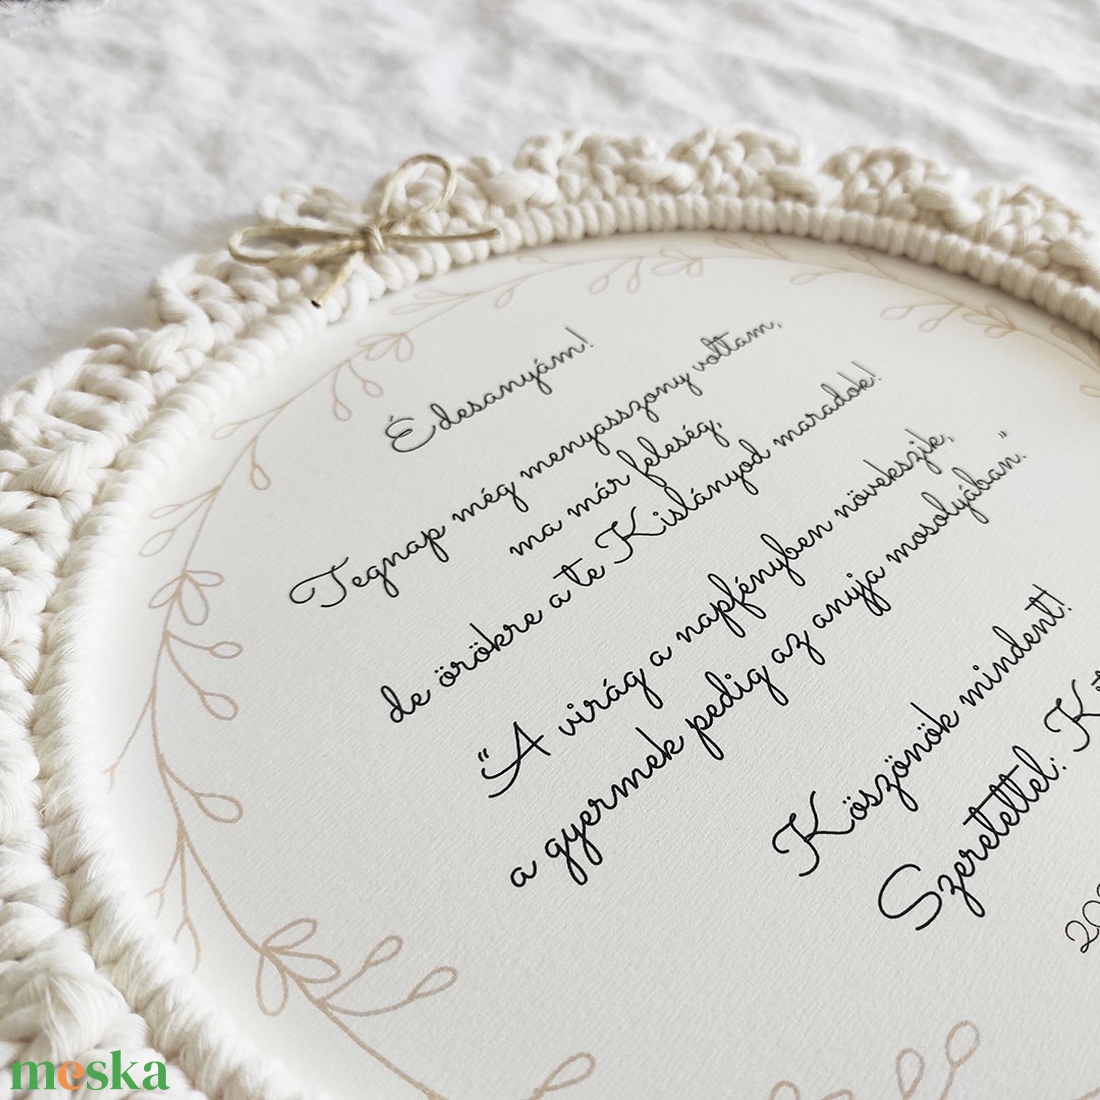 Édesanyám!
Tegnap még menyasszony voltam,
ma már feleség,
de örökre a te Kislányod maradok!
"A virág a napfényben növekszik,
a gyermek pedig az anyja mosolyában."
Köszönök mindent!
Szeretettel:
meska